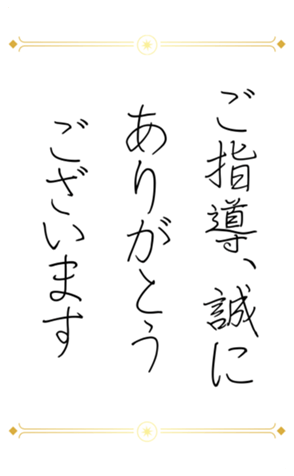 ご指導、誠に
ありがとう
ございます